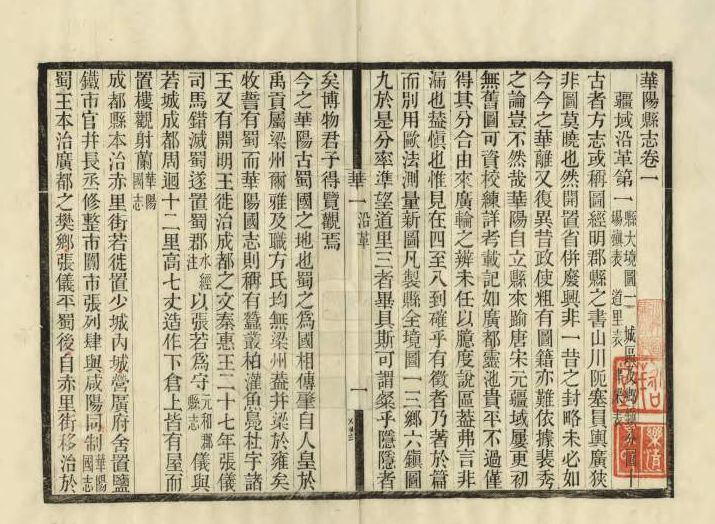 華陽縣志卷一
疆域沿革第一
縣大境圖一
古者方志或稱圖經明郡縣之書山川阨塞員輿廣狹
非圖莫曉也然開置省併廢興非一昔之封略未必如
今今之華離又復異昔政使粗有圖籍亦難依據裴秀
之論豈不然哉華陽自立縣來踰唐宋元疆域屢更初
無舊圖可資校練詳考載記如廣都靈池貴平不過僅
得其分合由來廣輪之辨未任以臆度說區蓋弗言非
漏也葢愼也惟見在四至八到確乎有徵者乃著於篇
而別用歐法測量新圖凡製縣全境圖一三鄉六鎭圖
九於是分率準望道里三者畢具斯可謂粲乎隱隱者
華一 沿革
一
矣博物君子得覽觀焉
今之華陽古蜀國之地也蜀之爲國相傳肇自人皇於
禹貢屬梁州爾雅及職方氏均無梁州葢并梁於雍矣
牧誓有蜀而華陽國志則稱有蠶叢柏灌魚鳧杜宇諸
王又有開明王徙治成都之文秦惠王二十七年張儀
司馬錯滅蜀遂置蜀郡水經注以張若爲守元和郡縣志儀與
若城成都周迴十二里高七丈造作下倉上皆有屋而
置樓觀射蘭華陽國志
成都縣本治赤里街若徙置少城內城營廣府舍置鹽
鐵市官并長丞修整市闤市張列肆與咸陽同制華陽國志
蜀王本治廣都之樊鄉張儀平蜀後自赤里街移治於